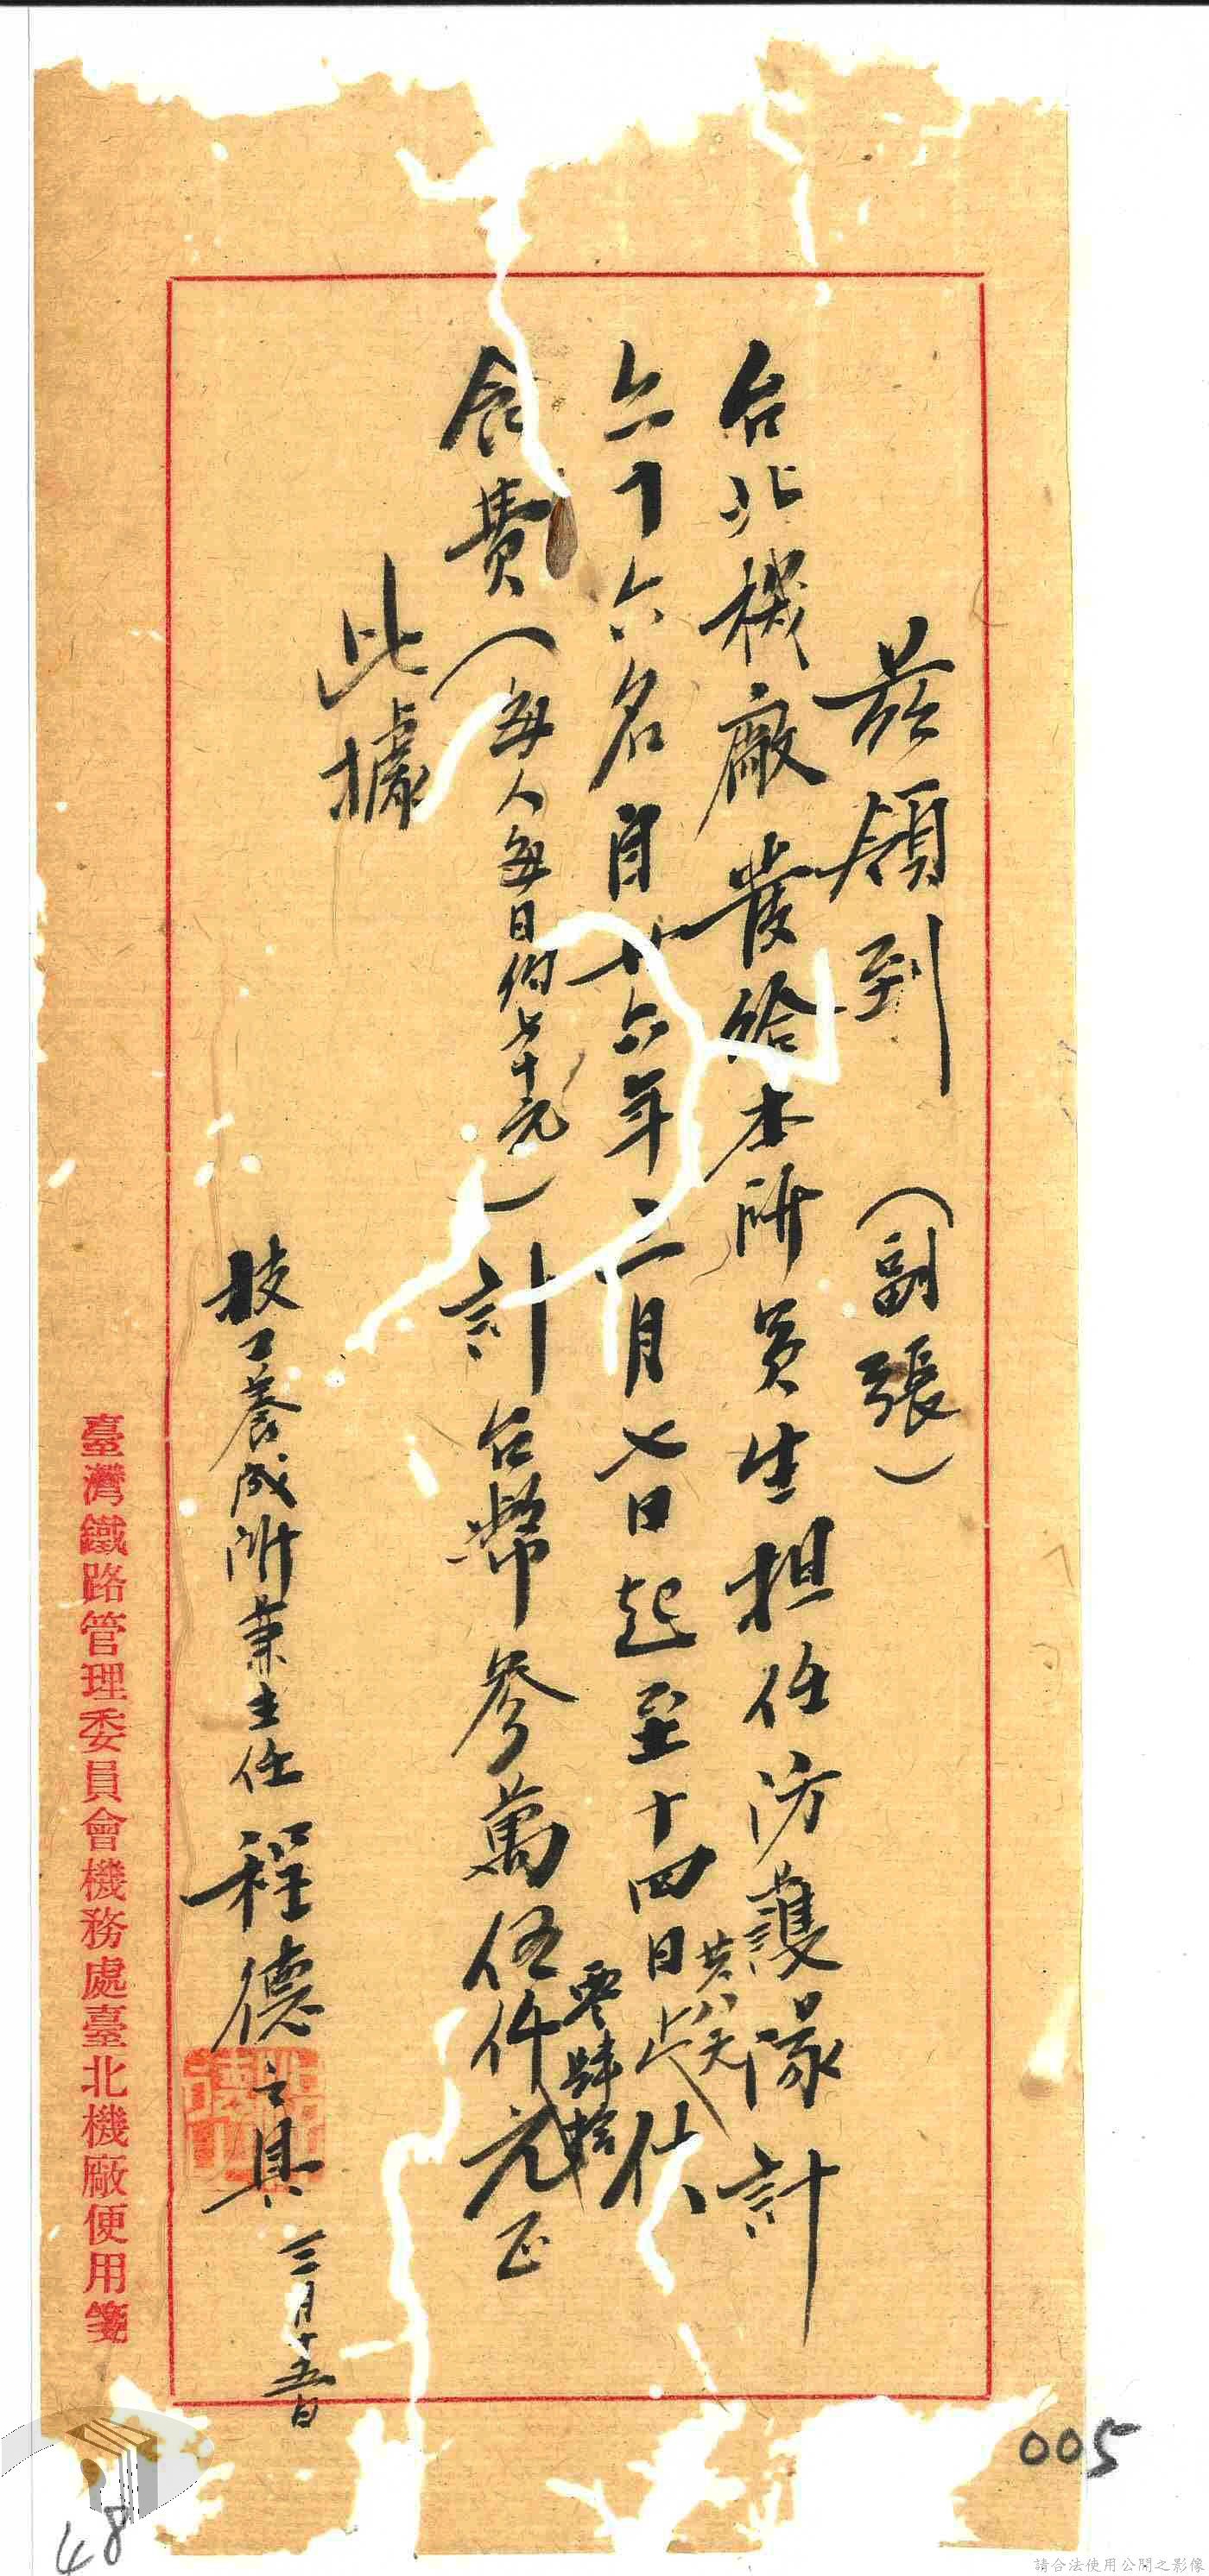 茲領到（副張）
台北機廠發給本所員生担任防護隊計
六十六名自卅六年三月七日起至十四日止伙
共八天
食費（每人每日份七十元）計台幣參萬伍仟元正
零肆拾
此據
技工養成所兼主任程德之具 三月十五日
臺灣鐵路管理委員會機務處臺北機廠便用箋
005
48
請合法使用公開之影像